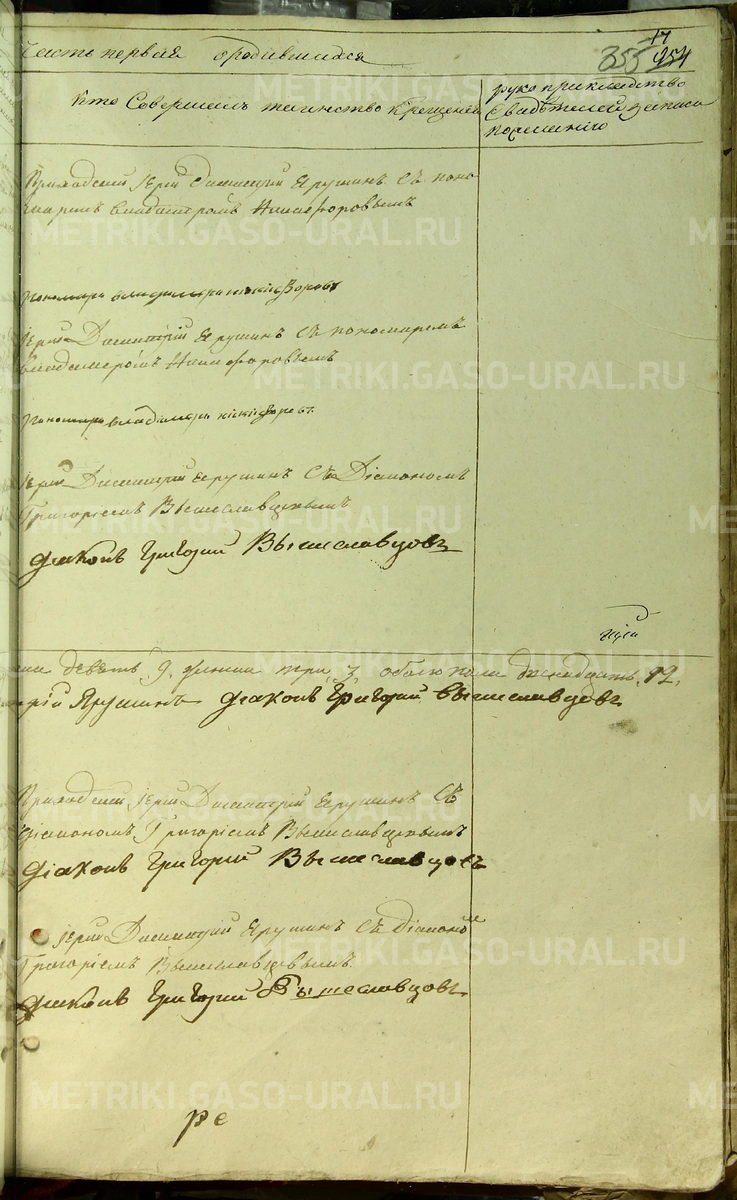 Часть первая о родившихся
17
355 254
Кто Совершалъ таинство Крещения
рукоприкладство
Свидѣтелей записи
по желанiю
Приходский Iерей Димитрий Ярушинъ Съ поно
маремъ Владимиромъ Никифоровымъ
Пономарь владимиръ никифоровъ
Iерей Димитрий Ярушинъ Съ пономаремъ
Владимеромъ Никифоровымъ
Пономарь владимеръ никифоровъ
Iерей Димитрий Ярушинъ Съ Дiакономъ
Григорiемъ Вышеславцевымъ
Дiаконъ Григорий Вышеславцовъ
девять 9. женска три 3. обоего пола двенадцать. 12.
рiй Ярушинъ Дiаконъ Григорий Вышеславцовъ
Приходский Iерей Димитрiй Ярушинъ Съ
дiакономъ Григорiемъ Вышеславцевымъ
Дiаконъ Григорий Вышеславцовъ
Iерей Димитрий Ярушинъ Съ дiакономъ
Григорiемъ Вышеславцевымъ
Дiаконъ Григорий Вышеславцовъ
ре
METRIKI.GASO-URAL.RU